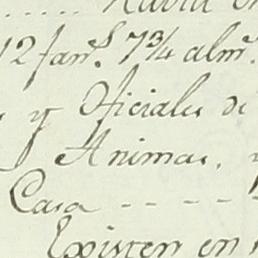 12 fan.s 7¾ alm.s
y Oficiales de
Animas, y
Casa - - - -
Existen en